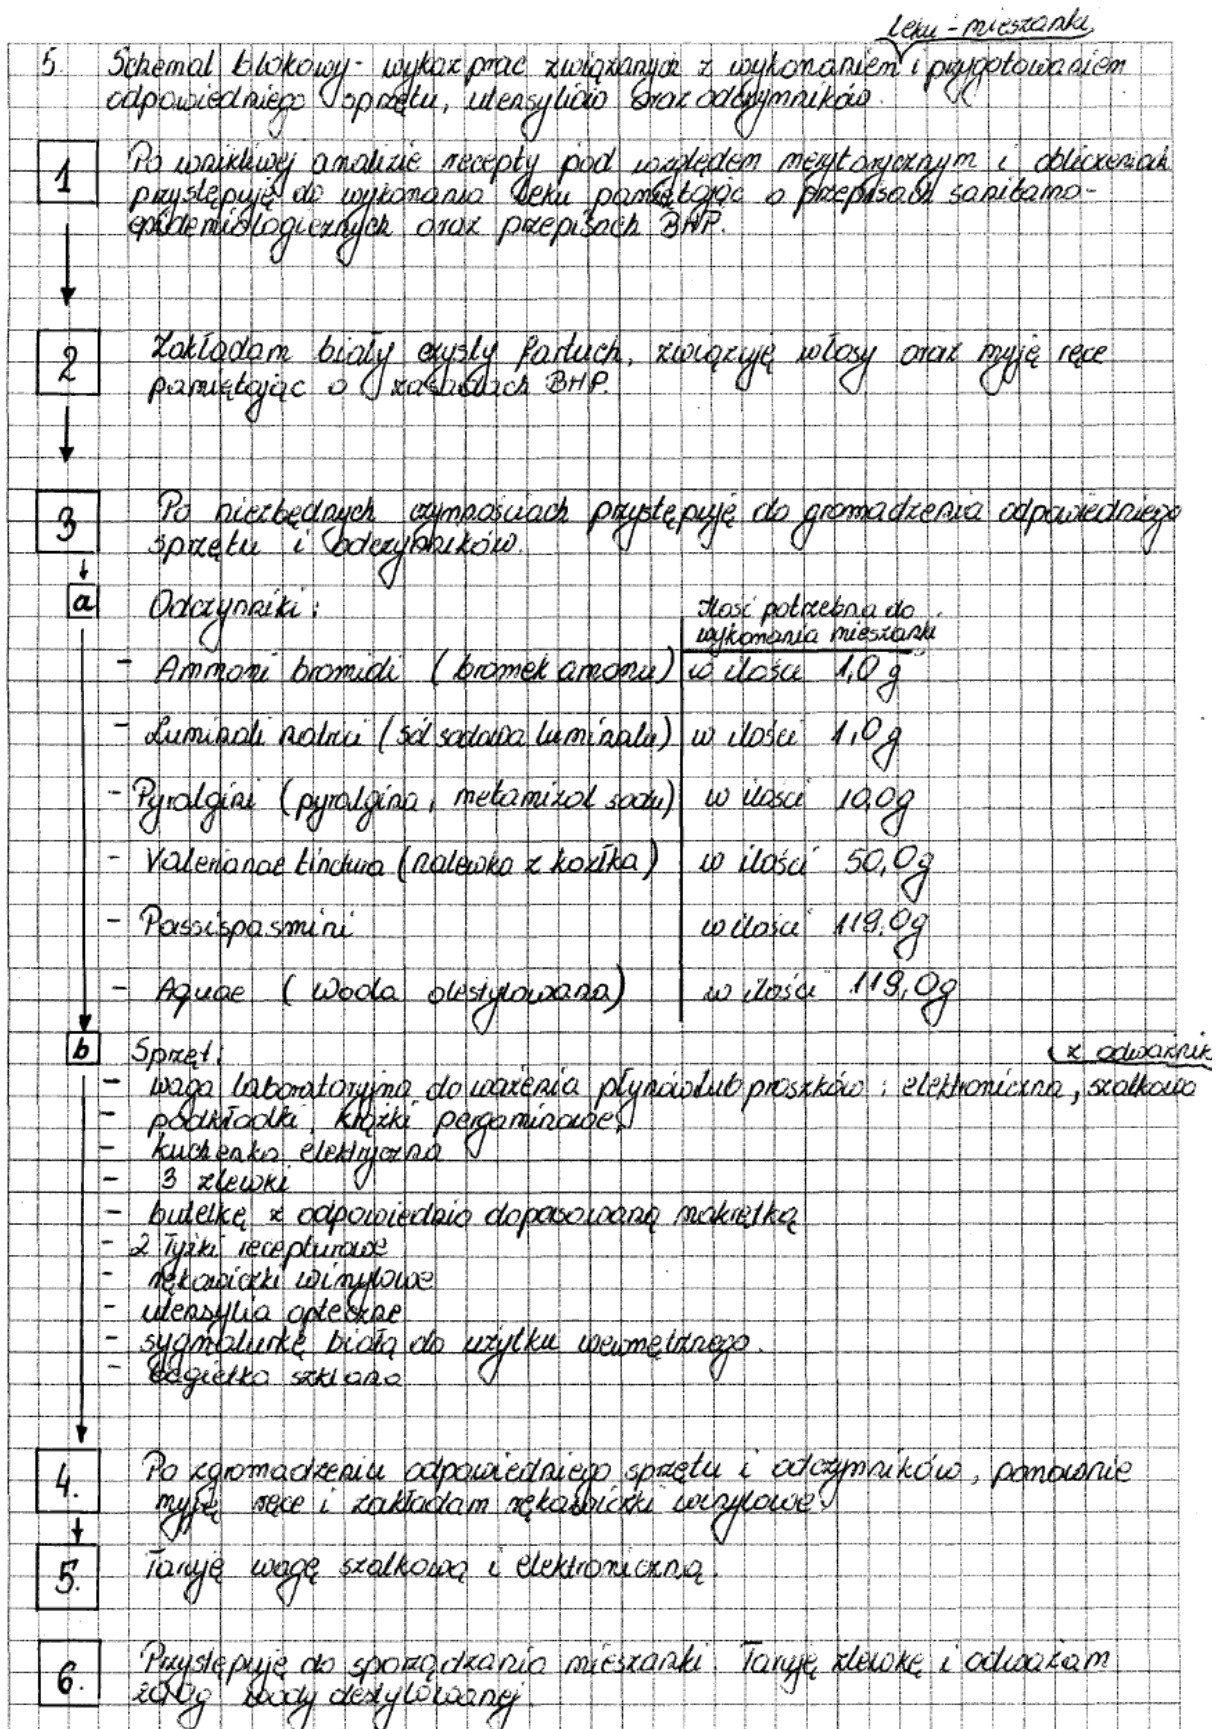 leku - mieszanki
5. Schemat blokowy - wykaz prac związanych z wykonaniem i przygotowaniem
odpowiedniego sprzętu, utensyliów oraz odczynników.
1 Po wnikliwej analizie recepty pod względem merytorycznym i obliczeniach
przystępuję do wykonania leku pamiętając o przepisach sanitarno-
epidemiologicznych oraz przepisach BHP.
2 Zakładam biały czysty fartuch, związuję włosy oraz myję ręce
pamiętając o zasadach BHP.
3 Po niezbędnych czynnościach przystępuję do gromadzenia odpowiedniego
sprzętu i odczynników.
a Odczynniki: Ilość potrzebna do
wykonania mieszanki
- Ammoni bromidi (bromek amonu) w ilości 1,0 g
- Luminali natrici (sól sodowa luminalu) w ilości 1,0 g
- Pyralgini (pyralgina, metamizol sodu) w ilości 10,0g
- Valerianae tinctura (nalewka z kozłka) w ilości 50,0g
- Passispasmini w ilości 119,0g
- Aquae (woda destylowana) w ilości 119,0g
b Sprzęt: (z odważnik
- waga laboratoryjna do ważenia płynów lub proszków: elektroniczna, szalkowa
- podkładki, krążki pergaminowe,
- kuchenka elektryczna
- 3 zlewki
- butelkę z odpowiednio dopasowaną nakrętką
- 2 łyżki recepturowe
- rękawiczki winylowe
- utensylia apteczne
- sygnaturkę białą do użytku wewnętrznego.
- bagietka szklana
4. Po zgromadzeniu odpowiedniego sprzętu i odczynników, ponownie
myję ręce i zakładam rękawiczki winylowe.
5. Taruję wagę szalkową i elektroniczną.
6. Przystępuję do sporządzania mieszanki. Taruję zlewkę i odważam
20,0g wody destylowanej.